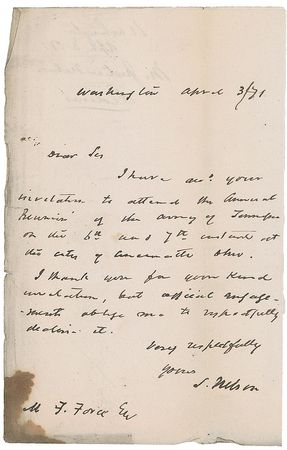 Washington April 3/71
Dear Sir
I have recd. your
invitation to attend the Annual
Reunion of the army of Tennessee
on the 6th and 7th instant at
the city of Cincinnati Ohio.
I thank you for your kind
invitation, but official engage-
ments oblige me to respectfully
decline it.
Very respectfully
Yours
S. Nelson
M F. Force Esq